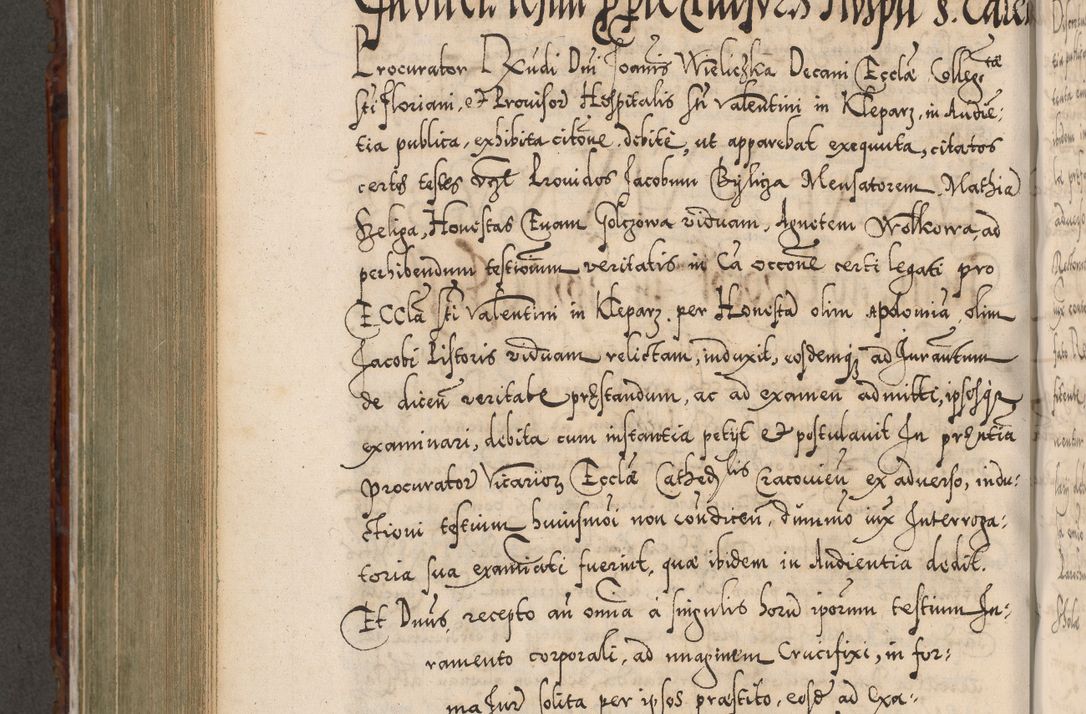 Inductio testium
Procurator Rndi Dni Joanis Wieliczka Decani Ecclæ Colleg:tæ
Sti Floriani, et Prouisor Hospitalis Sti Valentini in Kleparz, in Audie:
tia publica, exhibita citone, debitè, ut apparebat exequuta, citatos
certos testes vzt Prouidos Jacobum Byliga Mensatorem, Mathia
Szeliga, Honestas Euam Golczowa viduam, Agnetem Wołkowa, ad
perhibendum testionium veritatis in Ca occone certi legati pro
Eccla Sti Valentini in Kleparz per Honesta olim Apolonia, olim
Jacobi Pistoris viduam relictam, induxit, eosdemq ad Jurantum
de dicen veritate præstandum, ac ad examen admitti, ipsosq
examinari, debita cum instantia petyt et postulauit In prentia
procurator Vicarior Ecclæ Cathedlis Cracouien ex aduerso, indu:
ctioni testium huiusmoi non condicen, dummo iux Interroga:
toria sua examinati fuerint, quæ ibidem in Audientia dedit.
Et Dnus, recepto an omnia à singulis horu iporum testium Ju:
ramento corporali, ad imaginem Crucifixi, in for:
ma Jur solita per ipsos præstito, eosd ad Exa: